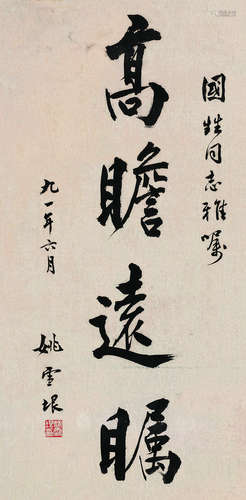 國甡同志雅嘱
高瞻遠瞩
九一年六月
姚雪垠